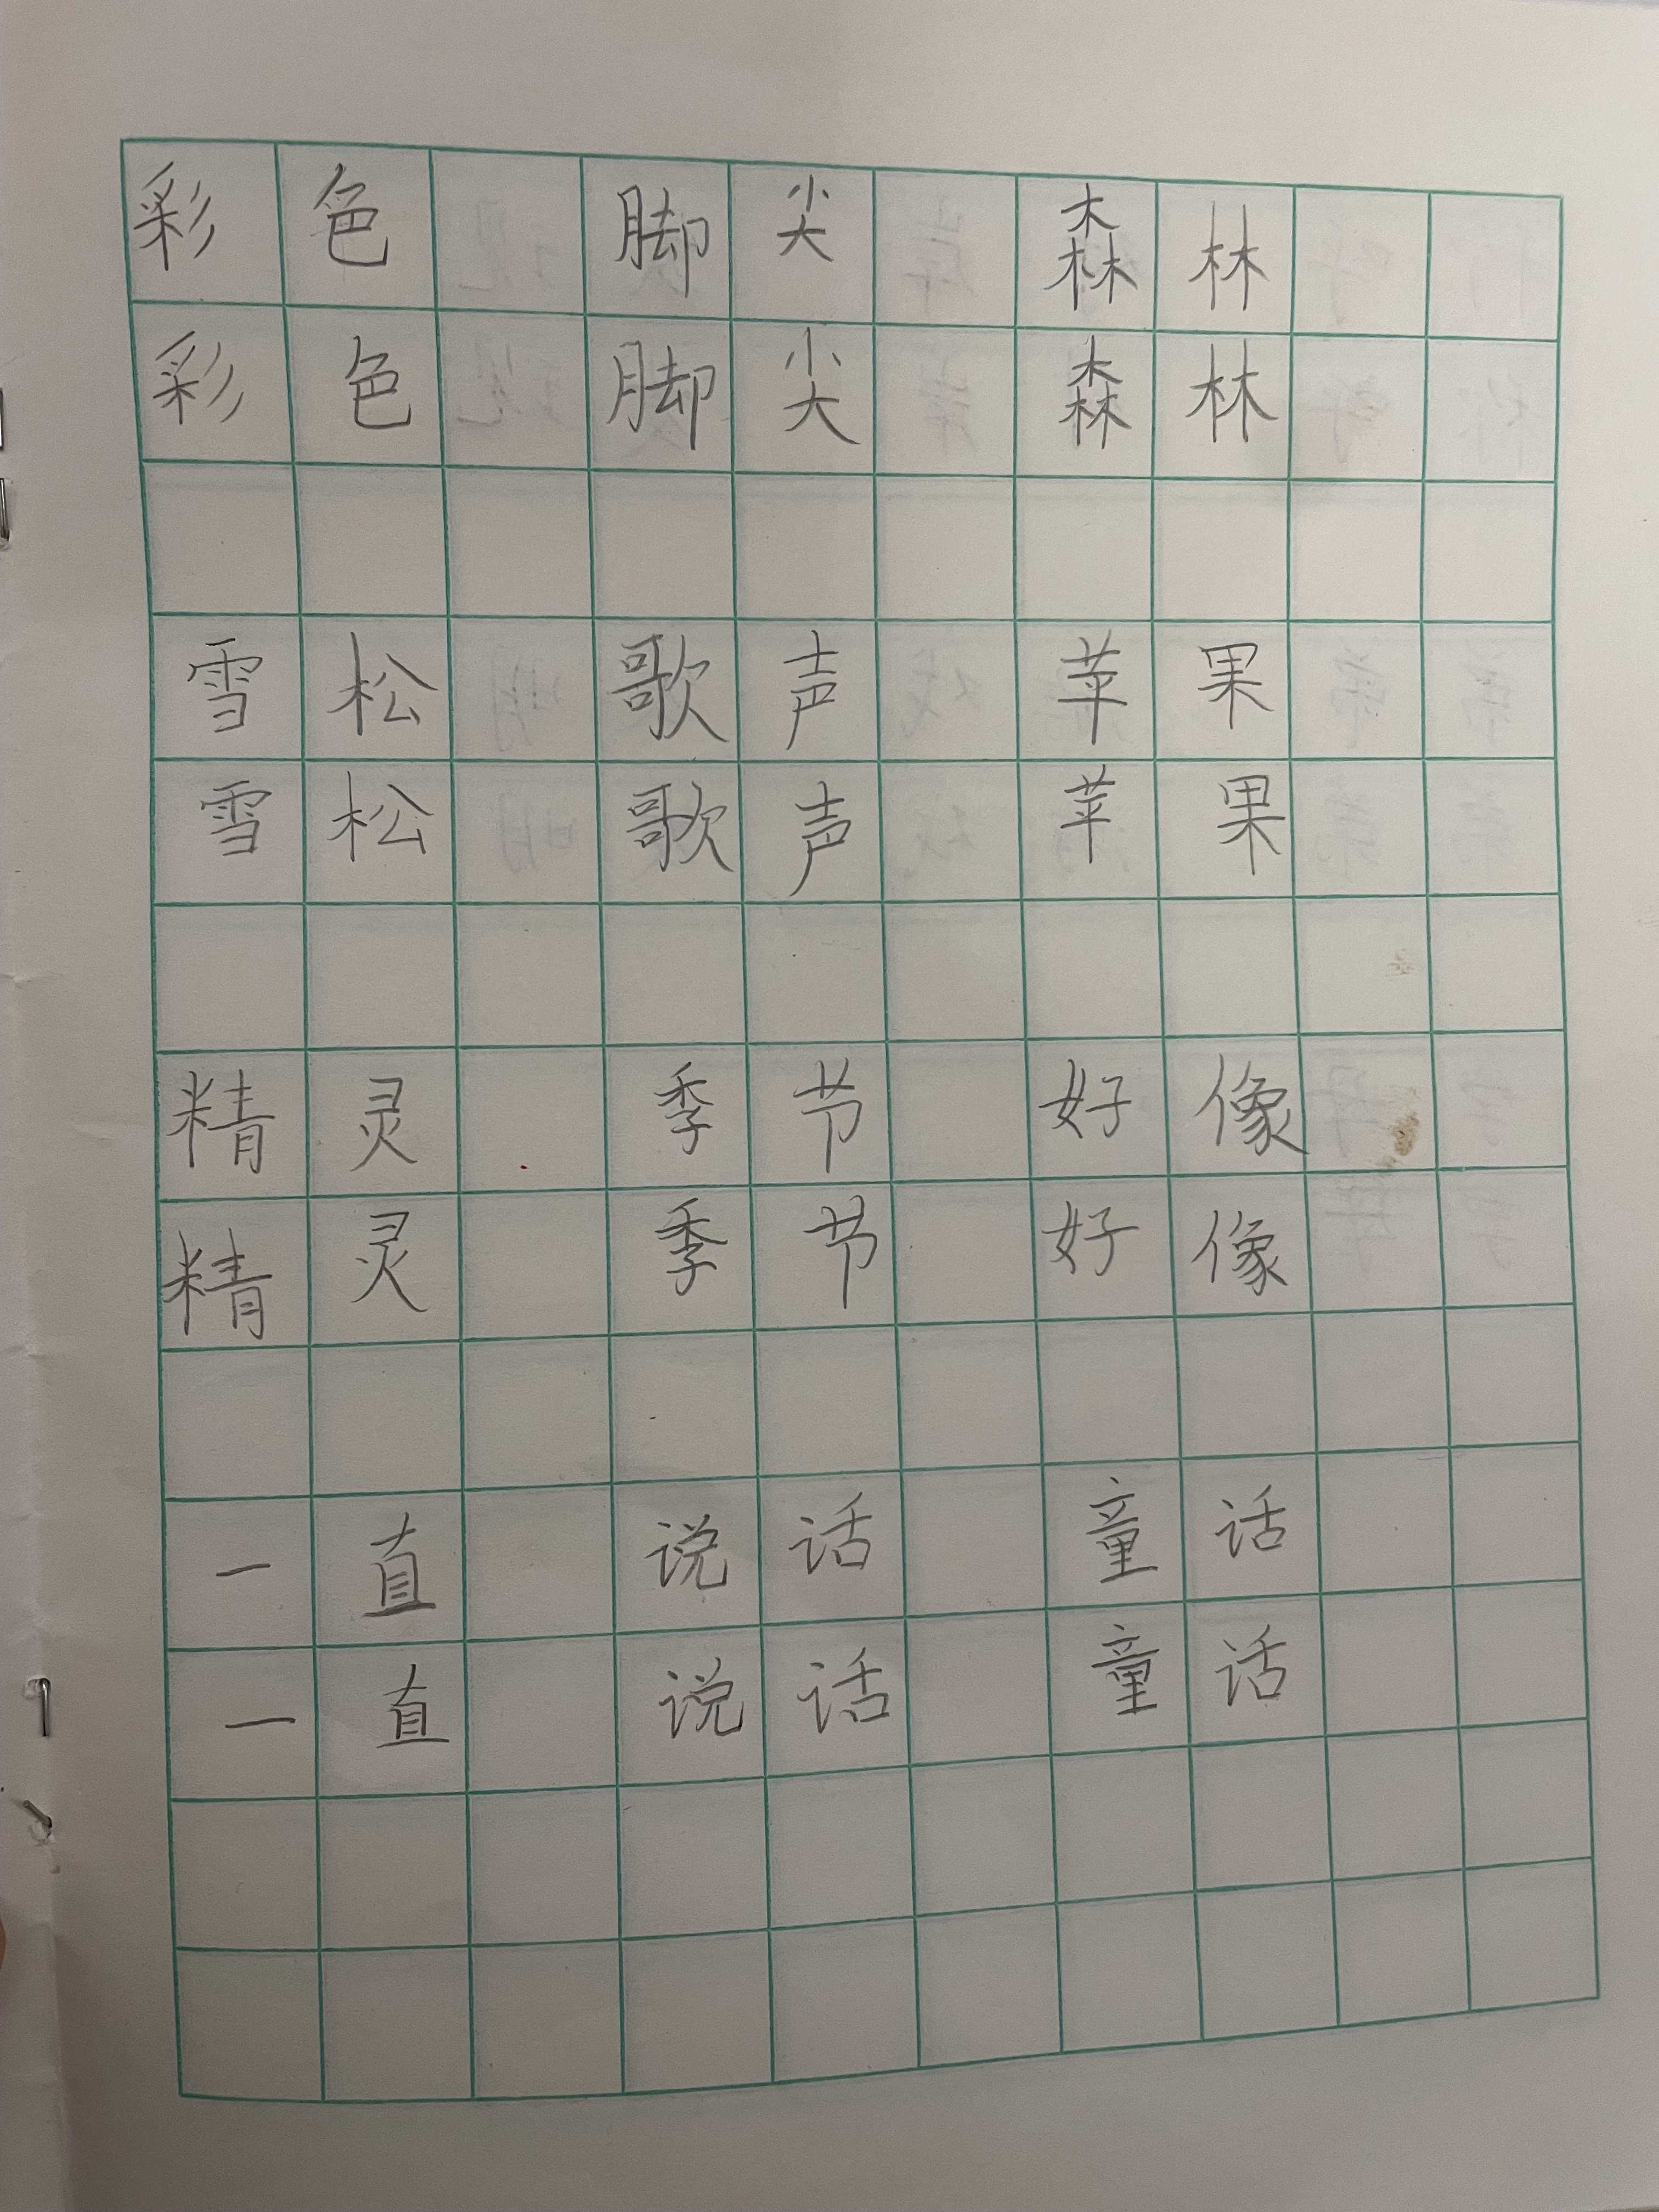 彩色 脚尖 森林
彩色 脚尖 森林
雪松 歌声 苹果
雪松 歌声 苹果
精灵 季节 好像
精灵 季节 好像
一直 说话 童话
一直 说话 童话